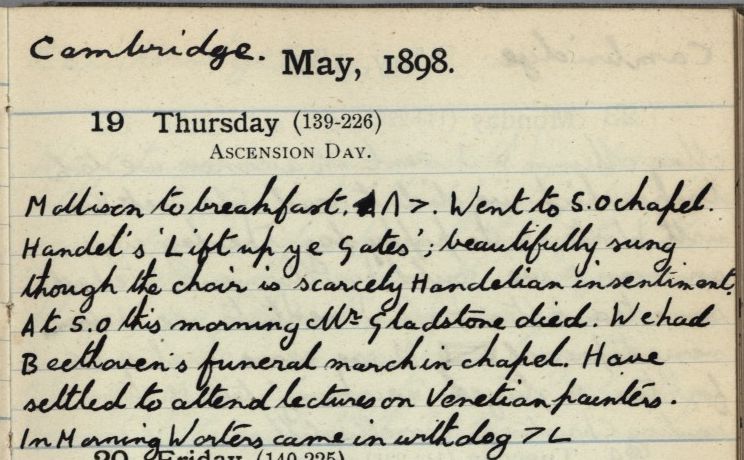 Cambridge. May, 1898.
19 Thursday (139-226)
ASCENSION DAY.
Mollison to breakfast. Λ Π >. Went to 5.0 chapel.
Handel's 'Lift up ye Gates'; beautifully sung
though the choir is scarcely Handelian in sentiment.
At 5.0 this morning Mr Gladstone died. We had
Beethoven's funeral march in chapel. Have
settled to attend lectures on Venetian painters.
In Morning Worters came in with dog > L
20 Friday (140-225)